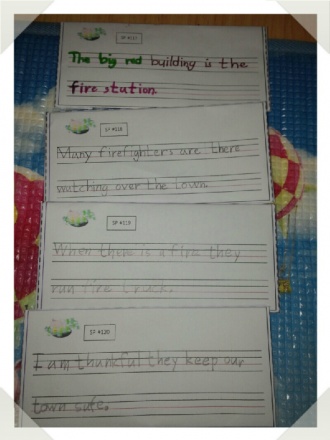 SP #117
The big red building is the
fire station.
SP #118
Many firefighters are there
watching over the town.
SP #119
When there is a fire they
run fire truck.
SP #120
I am thankful they keep our
town safe.